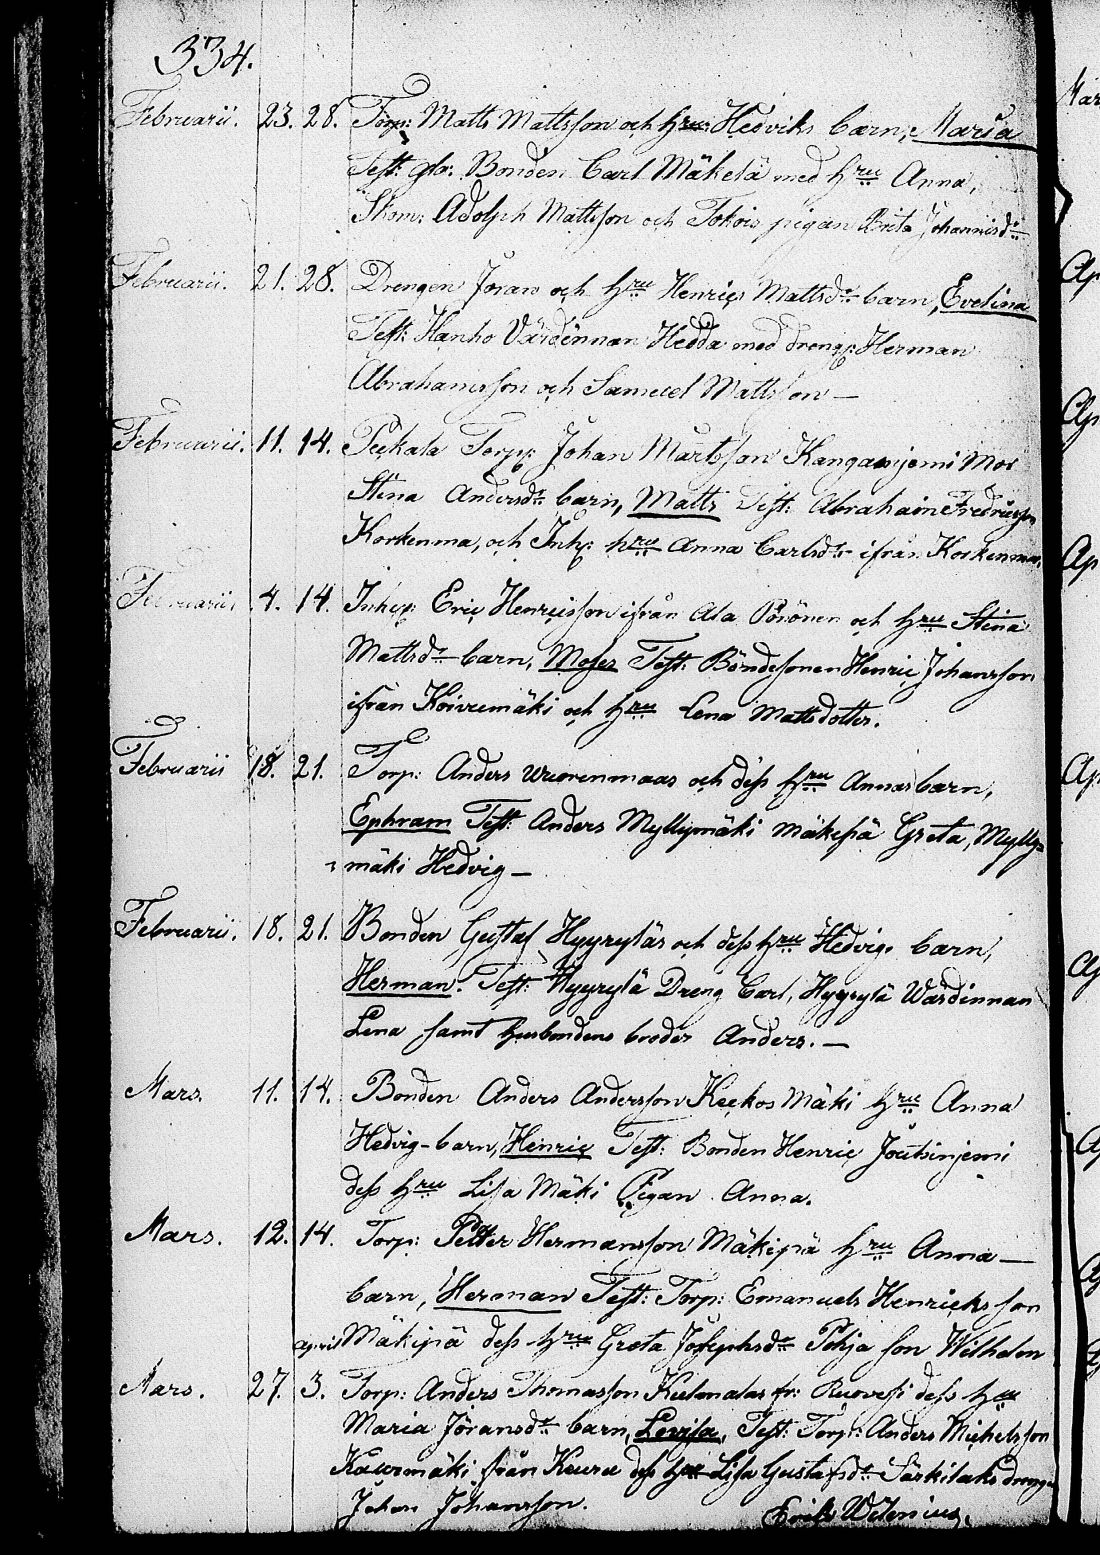 334.
Februarii. 23. 28. Torp: Matts Mattsson och hru Hedviks barn, Maria
Test: Bonden Carl Mäkelä med hru Anna,
Skom: Adolph Mattsson och Tokois pigan Brita Johannisdr
Februarii. 21. 28. Drengen Jöran och hru Henrics Mattsdr barn, Evelina
Test: Hanho Värdinnan Hedda med drengs: Herman
Abrahamsson och Samuel Mattsson —
Februarii. 11. 14. Torp: Johan Mattsson Kangasnjemi Mor
Stina Andersdr barn, Matts Test: Abraham Fredricsson
Korkenma, och Inh: hru Anna Carlsdr ifrån Korkenmaa,
Februarii. 4. 14. Inh: Eric Henricsson ifrån Ala Pörönen och hru Stina
Mattsdr barn, Moses Test: Bondesonen Henric Johansson
ifrån Koivumäki och hru Lena Mattsdotter.
Februarii 18. 21. Torp: Anders Wuorenmaas och dess hru Annas barn,
Ephram Test: Anders Myllymäki Mäkipä Greta, Mylly=
mäki Hedvig —
Februarii. 18. 21. Bonden Gustaf Hyyryläs och dess hru Hedvigs barn,
Herman. Test: Hyyrylä Dreng Carl, Hyyrylä Wärdinnan
Lena samt husbondens broder Anders. —
Mars. 11. 14. Bonden Anders Andersson Keckos Mäki hru Anna
Hedvig barn, Henric Test: Bonden Henric Joutsinjemi
dess hru Lisa Mäki Pigan Anna.
Mars. 12. 14. Torp: Petter Hermansson Mäkipä hru Anna —
barn, Herman Test: Torp: Emanuels Henricksson
Mäkipä dess hru Greta Josephsdr Pohja son Wilhelm
Mars. 27. April 3. Torp: Anders Thomasson fr: Ruovesi dess hru
Maria Jöransdr barn, Lovisa, Test: Torp: Anders Michelsson
från Keuru dess hru Lisa Gustafsdr Särkilaks dreng
Johan Johansson.
Erik Welenius.